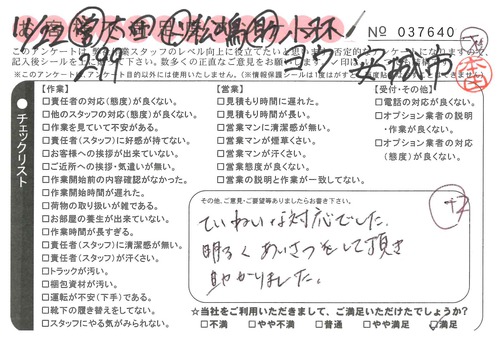 No 037640
このアンケートは、
スタッフのレベル向上に役立てたいと思います。
記入後シールを
下さい。数多くの正直なご意見をお願いします。
※このアンケート、アンケート目的以外には使用いたしません。(情報保護シールは1度はがすと
チェックリスト
【作業】
□責任者の対応(態度)が良くない。
□他のスタッフの対応(態度)が良くない。
□作業を見ていて不安がある。
□責任者(スタッフ)に好感が持てない。
□お客様への挨拶が出来ていない。
□ご近所への挨拶・気遣いが無い。
□作業開始前の内容確認がなかった。
□作業開始時間が遅れた。
□荷物の取り扱いが雑である。
□お部屋の養生が出来ていない。
□作業時間が長すぎる。
□責任者(スタッフ)に清潔感が無い。
□責任者(スタッフ)が汗くさい。
□トラックが汚い。
□梱包資材が汚い。
□運転が不安(下手)である。
□靴下の履き替えをしてない。
□スタッフにやる気がみられない。
【営業】
□見積もり時間に遅れた。
□見積もり時間が長い。
□営業マンに清潔感が無い。
□営業マンが煙草くさい。
□営業マンが汗くさい。
□営業態度が良くない。
□営業の説明と作業が一致してない。
【受付・その他】
□電話の対応が良くない。
□オプション業者の説明
・作業が良くない。
□オプション業者の対応
(態度)が良くない。
その他、ご意見・ご要望等ありましたらお書き下さい。
ていねいな対応でした。
明るくあいさつをして頂き
助かりました。
☆当社をご利用いただきまして、ご満足いただけたでしょうか?
□不満 □やや不満 □普通 □やや満足 □満足